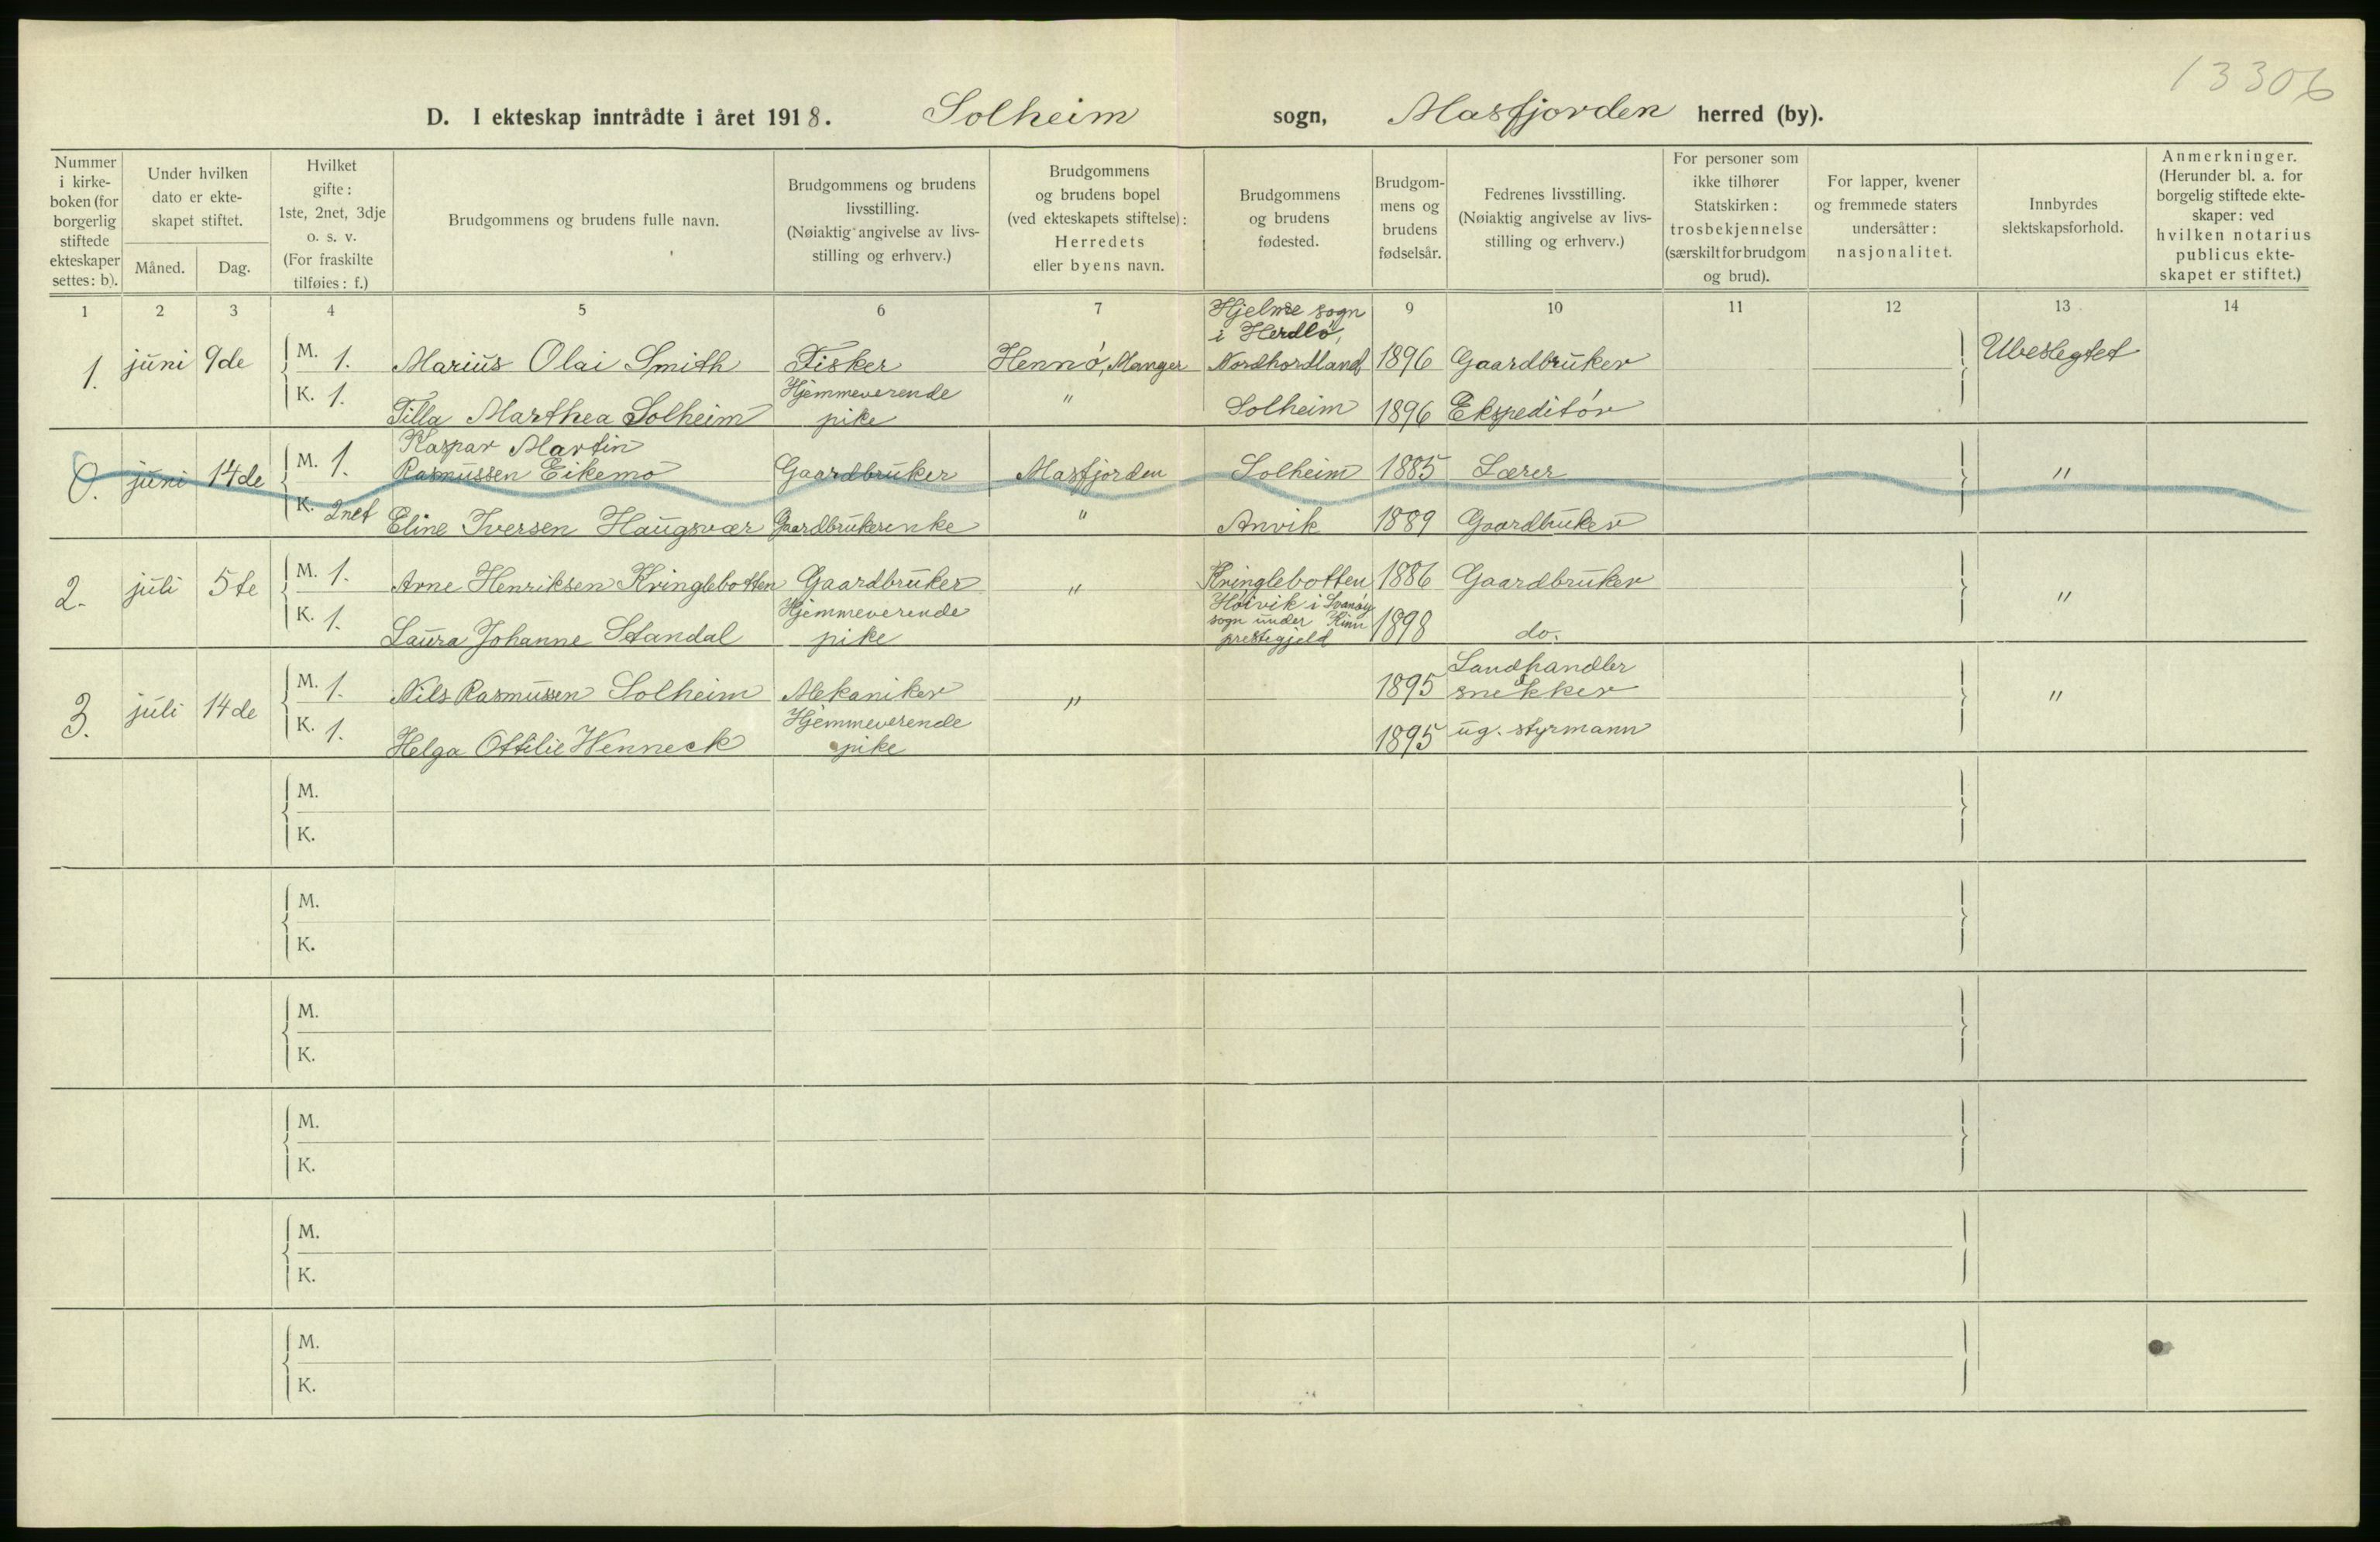 13306
D. I ekteskap inntrådte i året 1918. Solheim sogn, Masfjorden herred (by).
Nummer i kirkeboken (for borgerlig stiftede ekteskaper settes: b).
Under hvilken dato er ekteskapet stiftet.
Måned. Dag.
Hvilket gifte: 1ste, 2net, 3dje o. s. v. (For fraskilte tilføies: f.)
Brudgommens og brudens fulle navn.
Brudgommens og brudens livsstilling. (Nøiaktig angivelse av livsstilling og erhverv.)
Brudgommens og brudens bopel (ved ekteskapets stiftelse): Herredets eller byens navn.
Brudgommens og brudens fødested.
Brudgommens og brudens fødselsår.
Fedrenes livsstilling. (Nøiaktig angivelse av livsstilling og erhverv.)
For personer som ikke tilhører Statskirken: trosbekjennelse (særskilt for brudgom og brud).
For lapper, kvener og fremmede staters undersåtter: nasjonalitet.
Innbyrdes slektskapsforhold.
Anmerkninger. (Herunder bl. a. for borgelig stiftede ekteskaper: ved hvilken notarius publicus ekteskapet er stiftet.)
1 2 3 4 5 6 7 8 9 10 11 12 13 14
1. juni 9de M. 1. Marius Olai Smith Fisker Hennö, Manger Hjelme sogn i Herdlö, Nordhordland 1896 Gaardbruker Ubeslegtet
K. 1. Tilla Marthea Solheim Hjemmeverende pike " Solheim 1896 Ekspeditör
0. juni 14de M. 1. Kaspar Martin Rasmussen Eikemo Gaardbruker Masfjorden Solheim 1885 Lærer "
K. 2net Eline Iversen Haugsvær Gaardbrukerenke " Anvik 1889 Gaardbruker
2. juli 5te M. 1. Arne Henriksen Kringlebotten Gaardbruker " Kringlebotten 1886 Gaardbruker "
K. 1. Laura Johanne Standal Hjemmeverende pike Høivik i Svanøy sogn under Kinn prestegjeld 1898 do.
3. juli 14de M. 1. Nils Rasmussen Solheim Mekaniker " 1895 Landhandler & snekker "
K. 1. Helga Ottilie Wenneck Hjemmeverende pike 1895 ug. styrmann
M.
K.
M.
K.
M.
K.
M.
K.
M.
K.
M.
K.